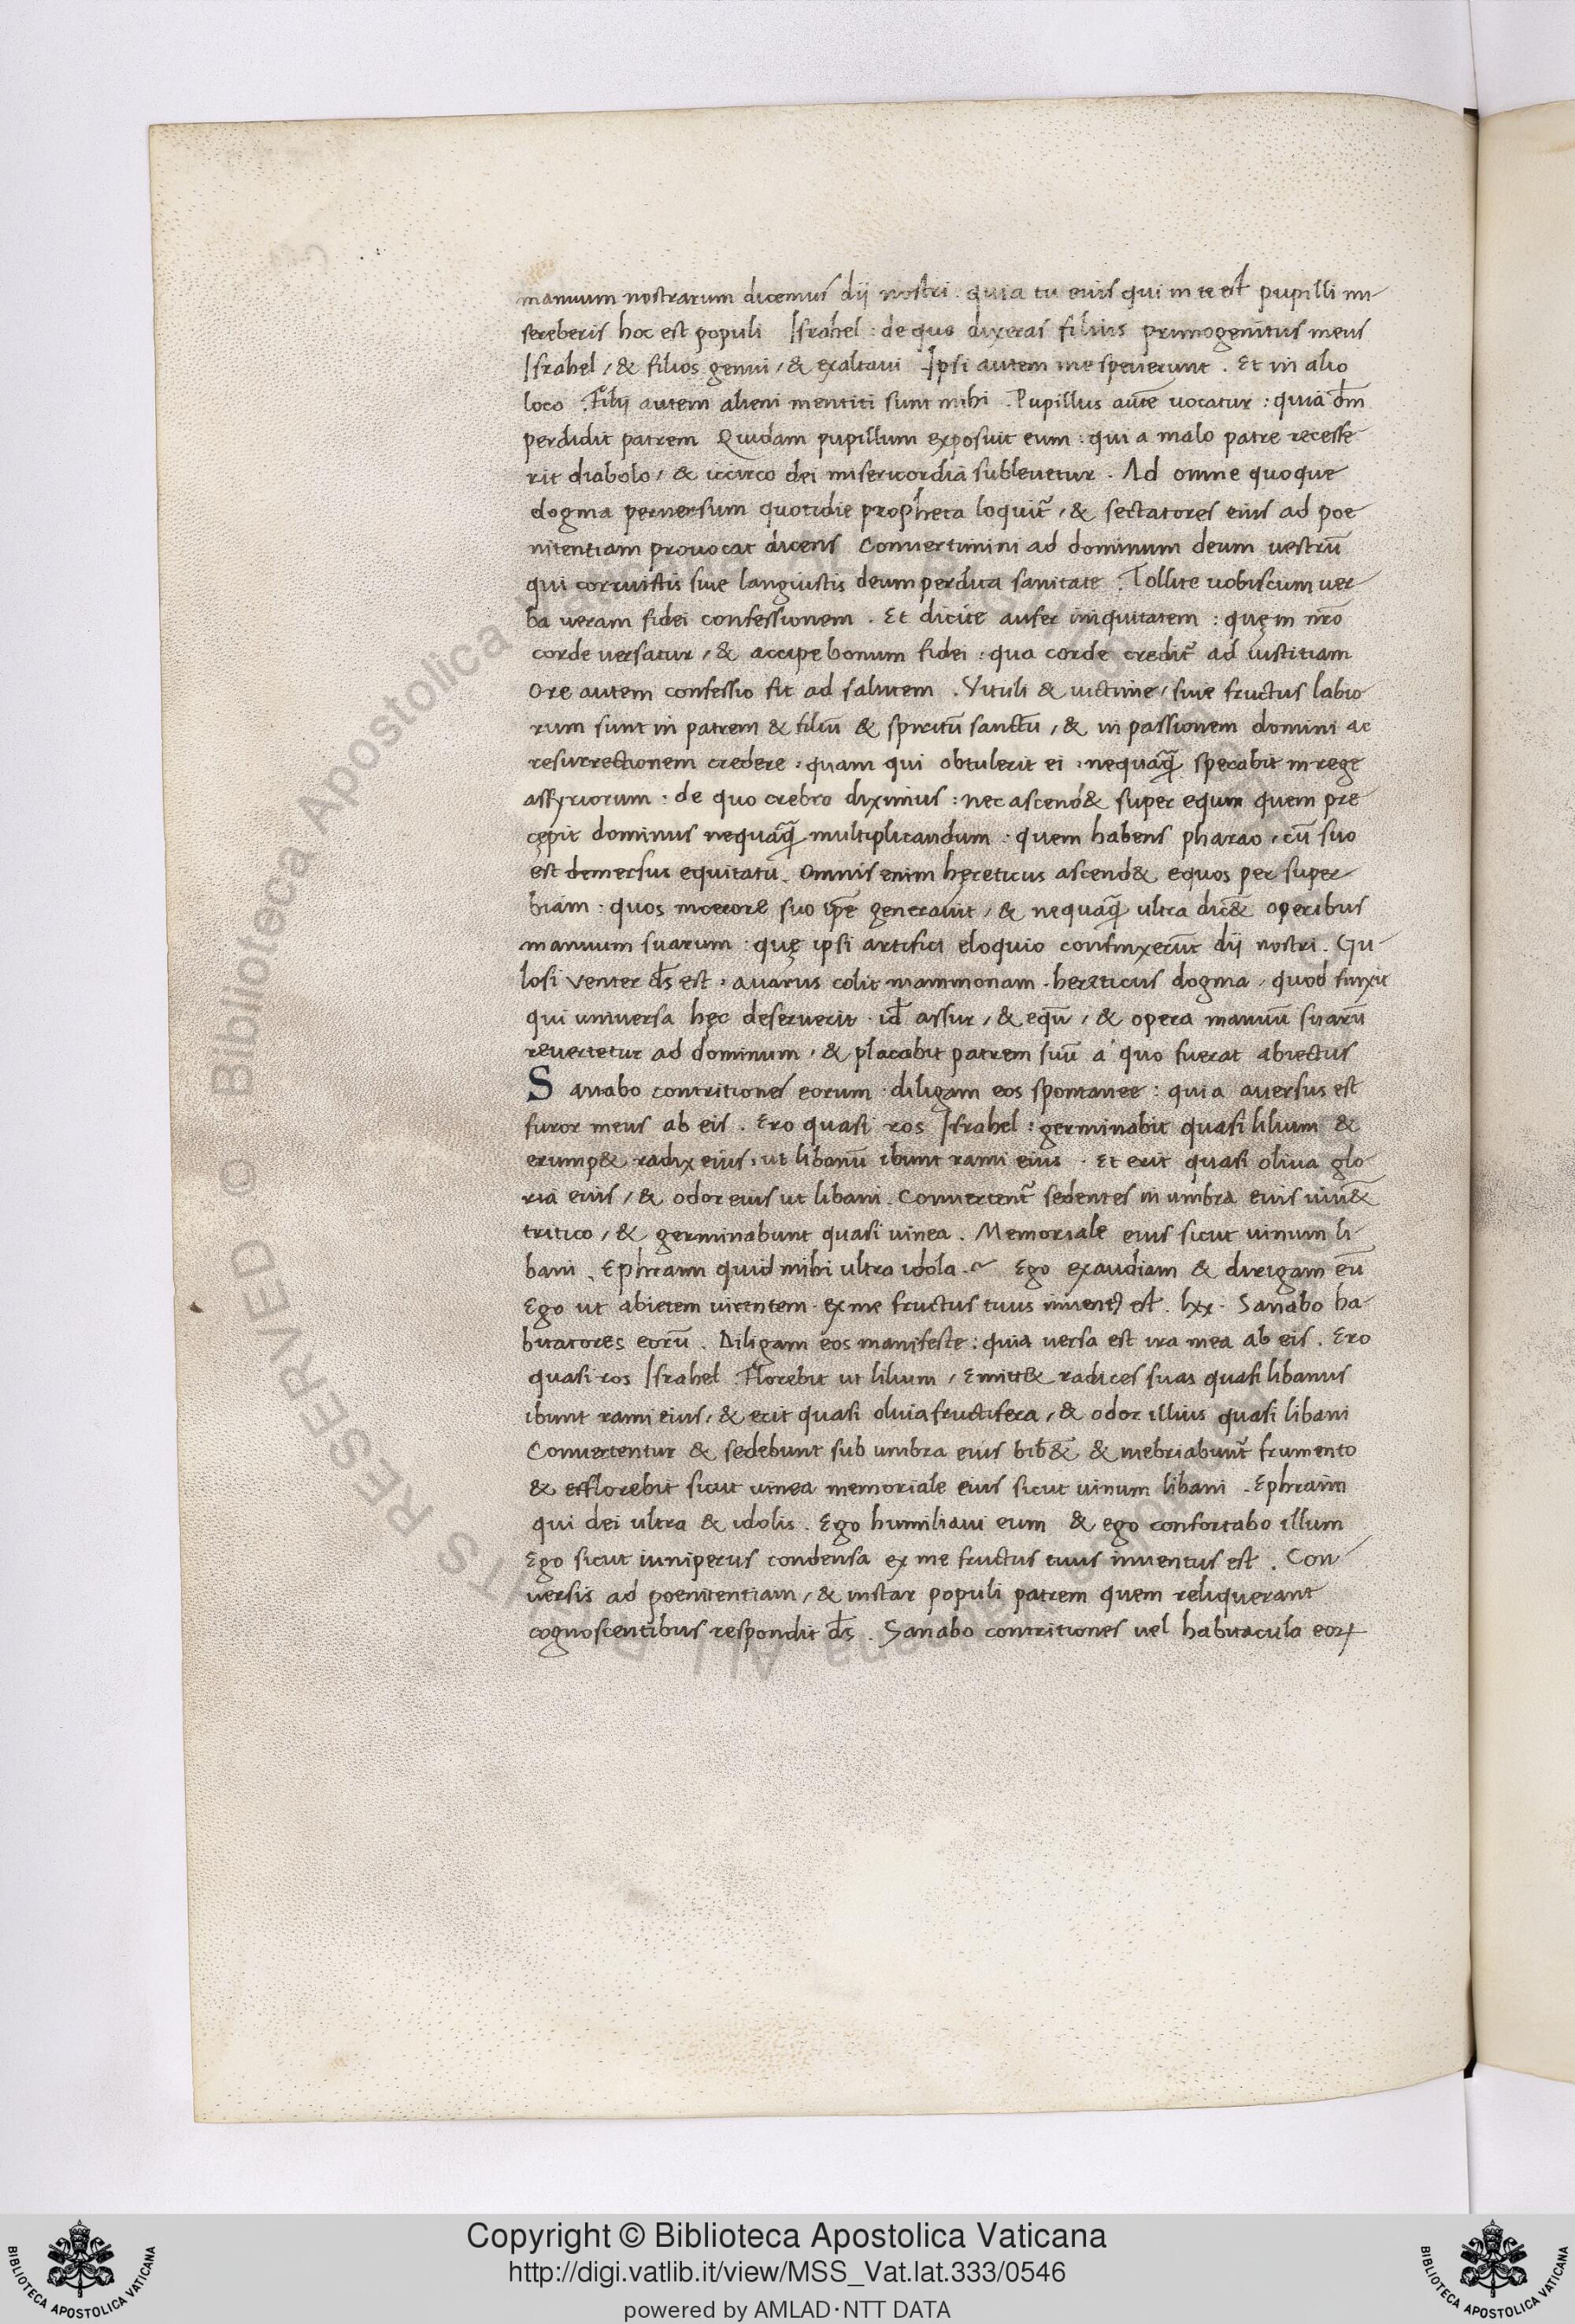 manuum nostrarum dicemus dij nostri . quia tu eius qui in te est pupilli mi-
sereberis hoc est populi Israhel : de quo dixeras filius primogenitus meus
Israhel / & filios genui / & exaltaui Ipsi autem me spreuerunt . Et in alio
loco . Filij autem alieni mentiti sunt mihi . Pupillus aut̃e uocatur : quia dm̅
perdidit patrem Quidam pupillum exposuit eum : qui a malo patre recesse-
rit diabolo / & iccirco dei misericordia subleuetur . Ad omne quoque
dogma peruersum quotidie propheta loquit̃ / & sectatores eius ad poe
nitentiam prouocat dicens Conuertimini ad dominum deum uestrũ
qui corruistis siue languistis deum perdita sanitate . Tollite uobiscum uer-
ba ueram fidei confessionem . Et dicite aufer iniquitatem : quę in nr̃o
corde versatur / & accipe bonum fidei : qua corde credit̃ ad iustitiam
Ore autem confessio fit ad salutem . Vituli & uictime / siue fructus labio
rum sunt in patrem & filiũ & spiritũ sanctũ / & in passionem domini ac
resurrectionem credere : quam qui obtulerit ei : nequaq̃ sperabit in rege
assyriorum : de quo crebro diximus : nec ascend& super equm quem pre
cepit dominus nequaq̃ multiplicandum : quem habens pharao / cũ suo
est demersus equitatu . Omnis enim hęreticus ascend& equos per super-
biam : quos in cerore suo ip̅e generauit / & nequaq̃ ultra dic& operibus
manuum suarum : quę ipsi artifici eloquio confinxerũt dij nostri . Gu-
losi venter ds̅ est : auarus colit mammonam . hereticus dogma / quod finxit
qui uniuersa hęc deseruerit . id̅ assur / & equũ / & opera manuũ suarũ
reuertetur ad dominum / & placabit patrem suũ a quo fuerat abiectus
S anabo contritiones eorum : diligam eos spontanee : quia auersus est
furor meus ab eis . Ero quasi ros Israhel : germinabit quasi lilium &
erump& radix eius : ut libanũ ibunt rami eius . Et erit quasi oliua glo
ria eius / & odor eius ut libani . Conuertent̃ sedentes in umbra eius uiu&̃
tritico / & germinabunt quasi uinea . Memoriale eius sicut uinum li-
bani . Ephraim quid mihi ultra idola . Ego exaudiam & dirigam eũ
Ego ut abietem uirentem . ex me fructus tuus inuentꝰ est . lxx . Sanabo ha-
bitatores eorũ . Diligam eos manifeste : quia versa est ira mea ab eis . Ero
quasi ros Israhel . Florebit ut lilium / Emitt& radices suas quasi libanus
ibunt rami eius / & erit quasi oliua fructifera / & odor illius quasi libani
Conuertentur & sedebunt sub umbra eius bib&̃ . & inebriabunt̃ frumento
& efflorebit sicut uinea memoriale eius sicut uinum libani . Ephraim
qui dei ultra & idolis . Ego humiliaui eum & ego confortabo illum
Ego sicut iuniperus condensa ex me fructus tuus inuentus est . Con-
uersis ad poenitentiam / & instar populi patrem quem reliquerant
cognoscentibus respondit ds̅ . Sanabo contritiones uel habitacula eoꝝ
© Biblioteca Apostolica Vaticana ALL RIGHTS RESERVED
Copyright © Biblioteca Apostolica Vaticana
http://digi.vatlib.it/view/MSS_Vat.lat.333/0546
powered by AMLAD·NTT DATA
BIBLIOTECA APOSTOLICA VATICANA
BIBLIOTECA APOSTOLICA VATICANA